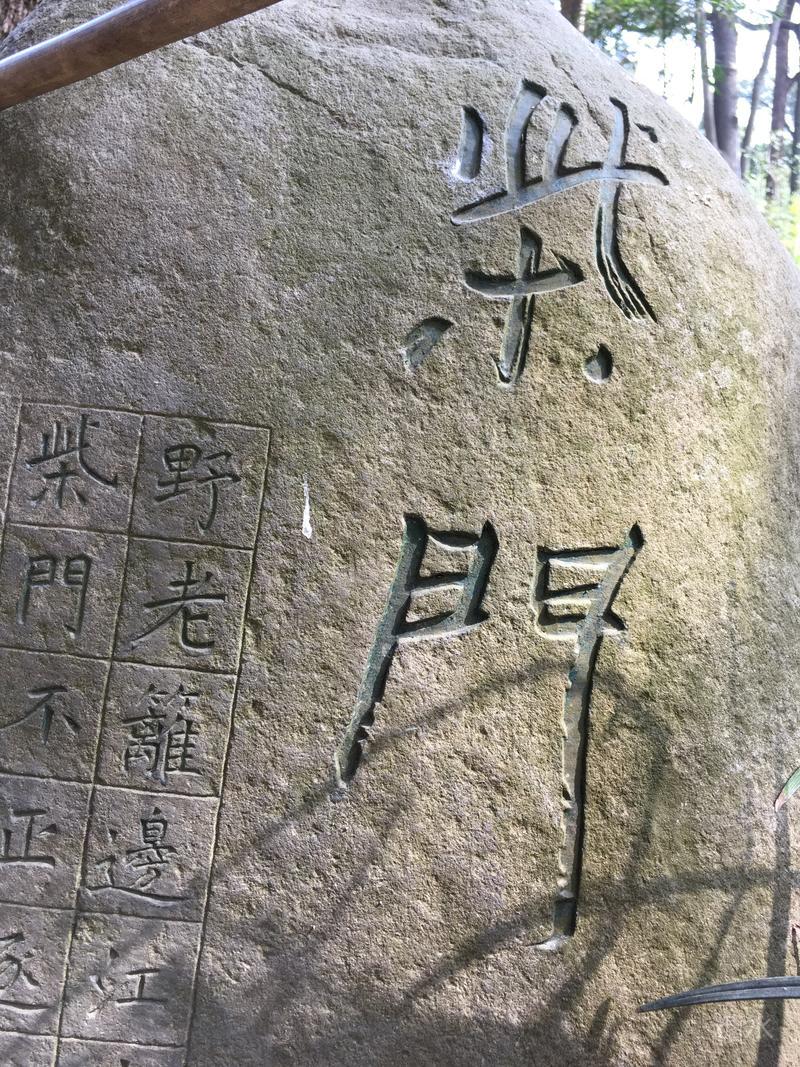 柴門
野老籬邊江
柴門不正逐